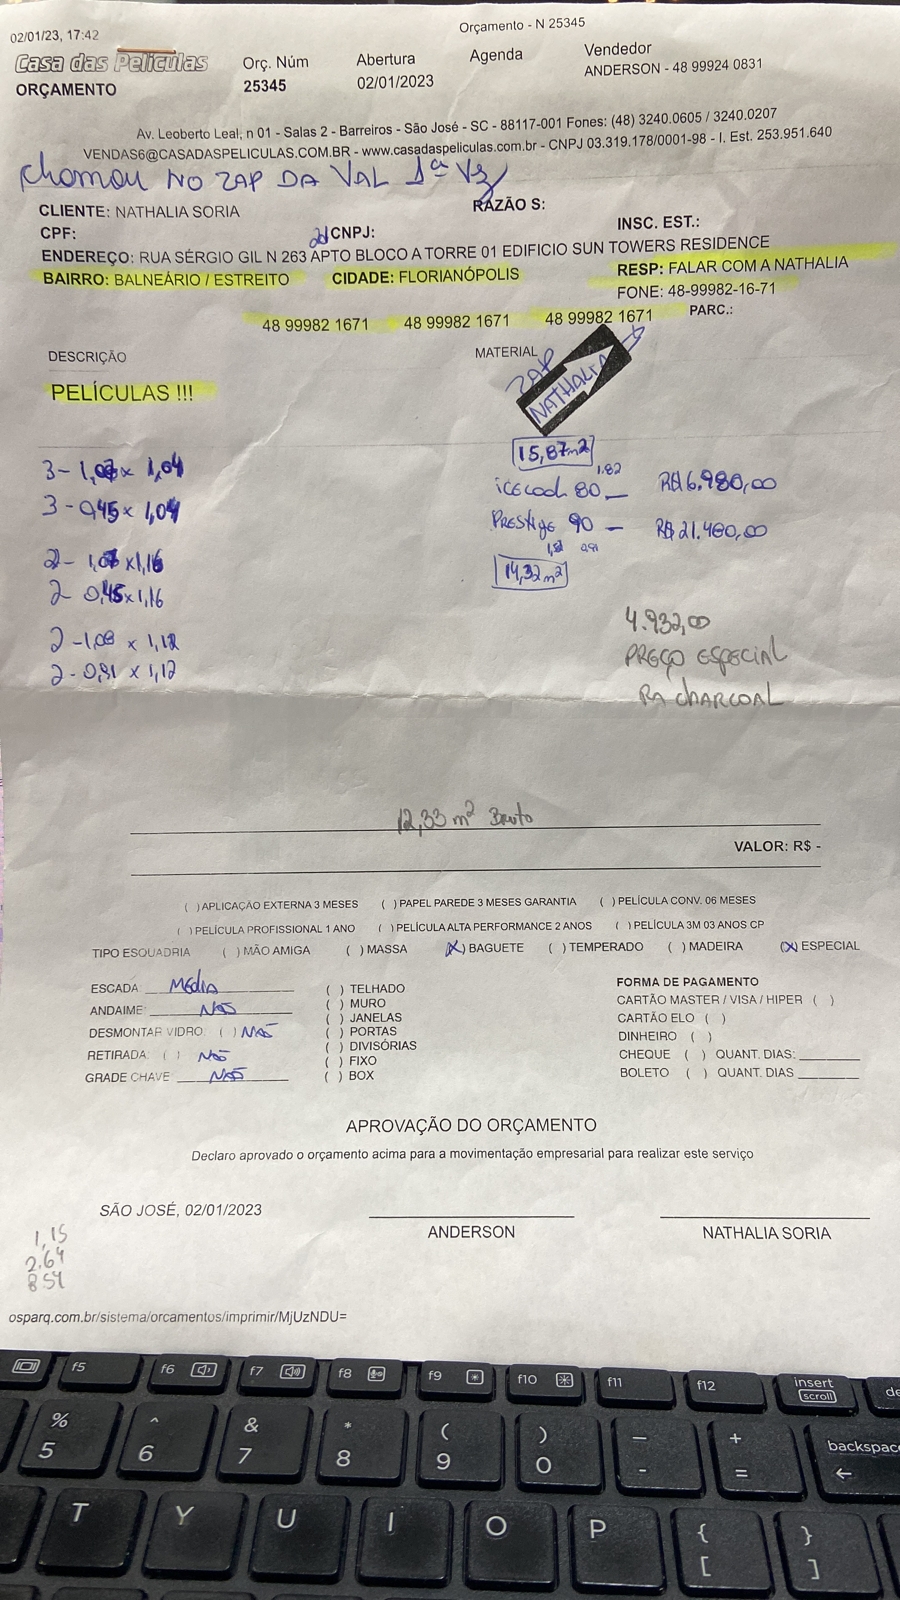 02/01/23, 17:42
Orçamento - N 25345
Casa das Películas
ORÇAMENTO
Orç. Núm
25345
Abertura
02/01/2023
Agenda
Vendedor
ANDERSON - 48 99924 0831
Av. Leoberto Leal, n 01 - Salas 2 - Barreiros - São José - SC - 88117-001 Fones: (48) 3240.0605 / 3240.0207
VENDAS6@CASADASPELICULAS.COM.BR - www.casadaspeliculas.com.br - CNPJ 03.319.178/0001-98 - I. Est. 253.951.640
chamou NO ZAP DA VAL 1ª Vz
CLIENTE: NATHALIA SORIA
RAZÃO S:
CPF:
CNPJ:
INSC. EST.:
ENDEREÇO: RUA SÉRGIO GIL N 263 APTO BLOCO A TORRE 01 EDIFICIO SUN TOWERS RESIDENCE
BAIRRO: BALNEÁRIO / ESTREITO
CIDADE: FLORIANÓPOLIS
RESP: FALAR COM A NATHALIA
FONE: 48-99982-16-71
48 99982 1671 48 99982 1671 48 99982 1671
PARC.:
DESCRIÇÃO
MATERIAL
ZAP
NATHALIA
PELÍCULAS !!!
15,87m2
3 - 1,07 x 1,04
1.82
icecool 80 — R$ 6.980,00
3 - 0,45 x 1,04
Prestige 90 — R$ 21.460,00
2 - 1,07 x 1,16
14,32m²
2 0,45 x 1,16
4.932,00
2 - 1,08 x 1,12
PREÇO ESPECIAL
2 - 0,91 x 1,12
RA CHARCOAL
12,33 m² Bruto
VALOR: R$ -
( ) APLICAÇÃO EXTERNA 3 MESES ( ) PAPEL PAREDE 3 MESES GARANTIA ( ) PELÍCULA CONV. 06 MESES
( ) PELÍCULA PROFISSIONAL 1 ANO ( ) PELÍCULA ALTA PERFORMANCE 2 ANOS ( ) PELÍCULA 3M 03 ANOS CP
TIPO ESQUADRIA ( ) MÃO AMIGA ( ) MASSA (X) BAGUETE ( ) TEMPERADO ( ) MADEIRA (X) ESPECIAL
ESCADA Média
ANDAIME: Não
DESMONTAR VIDRO: ( ) Não
RETIRADA: ( ) Não
GRADE CHAVE: Não
( ) TELHADO
( ) MURO
( ) JANELAS
( ) PORTAS
( ) DIVISÓRIAS
( ) FIXO
( ) BOX
FORMA DE PAGAMENTO
CARTÃO MASTER / VISA / HIPER ( )
CARTÃO ELO ( )
DINHEIRO ( )
CHEQUE ( ) QUANT. DIAS:
BOLETO ( ) QUANT. DIAS
APROVAÇÃO DO ORÇAMENTO
Declaro aprovado o orçamento acima para a movimentação empresarial para realizar este serviço
SÃO JOSÉ, 02/01/2023
ANDERSON
NATHALIA SORIA
1,15
2,64
854
osparq.com.br/sistema/orcamentos/imprimir/MjUzNDU=
f5 f6 f7 f8 f9 f10 f11 f12 insert
scroll
% ^ & * ( ) — +
5 6 7 8 9 0 - = backspac
T Y U I O P { }
[ ]